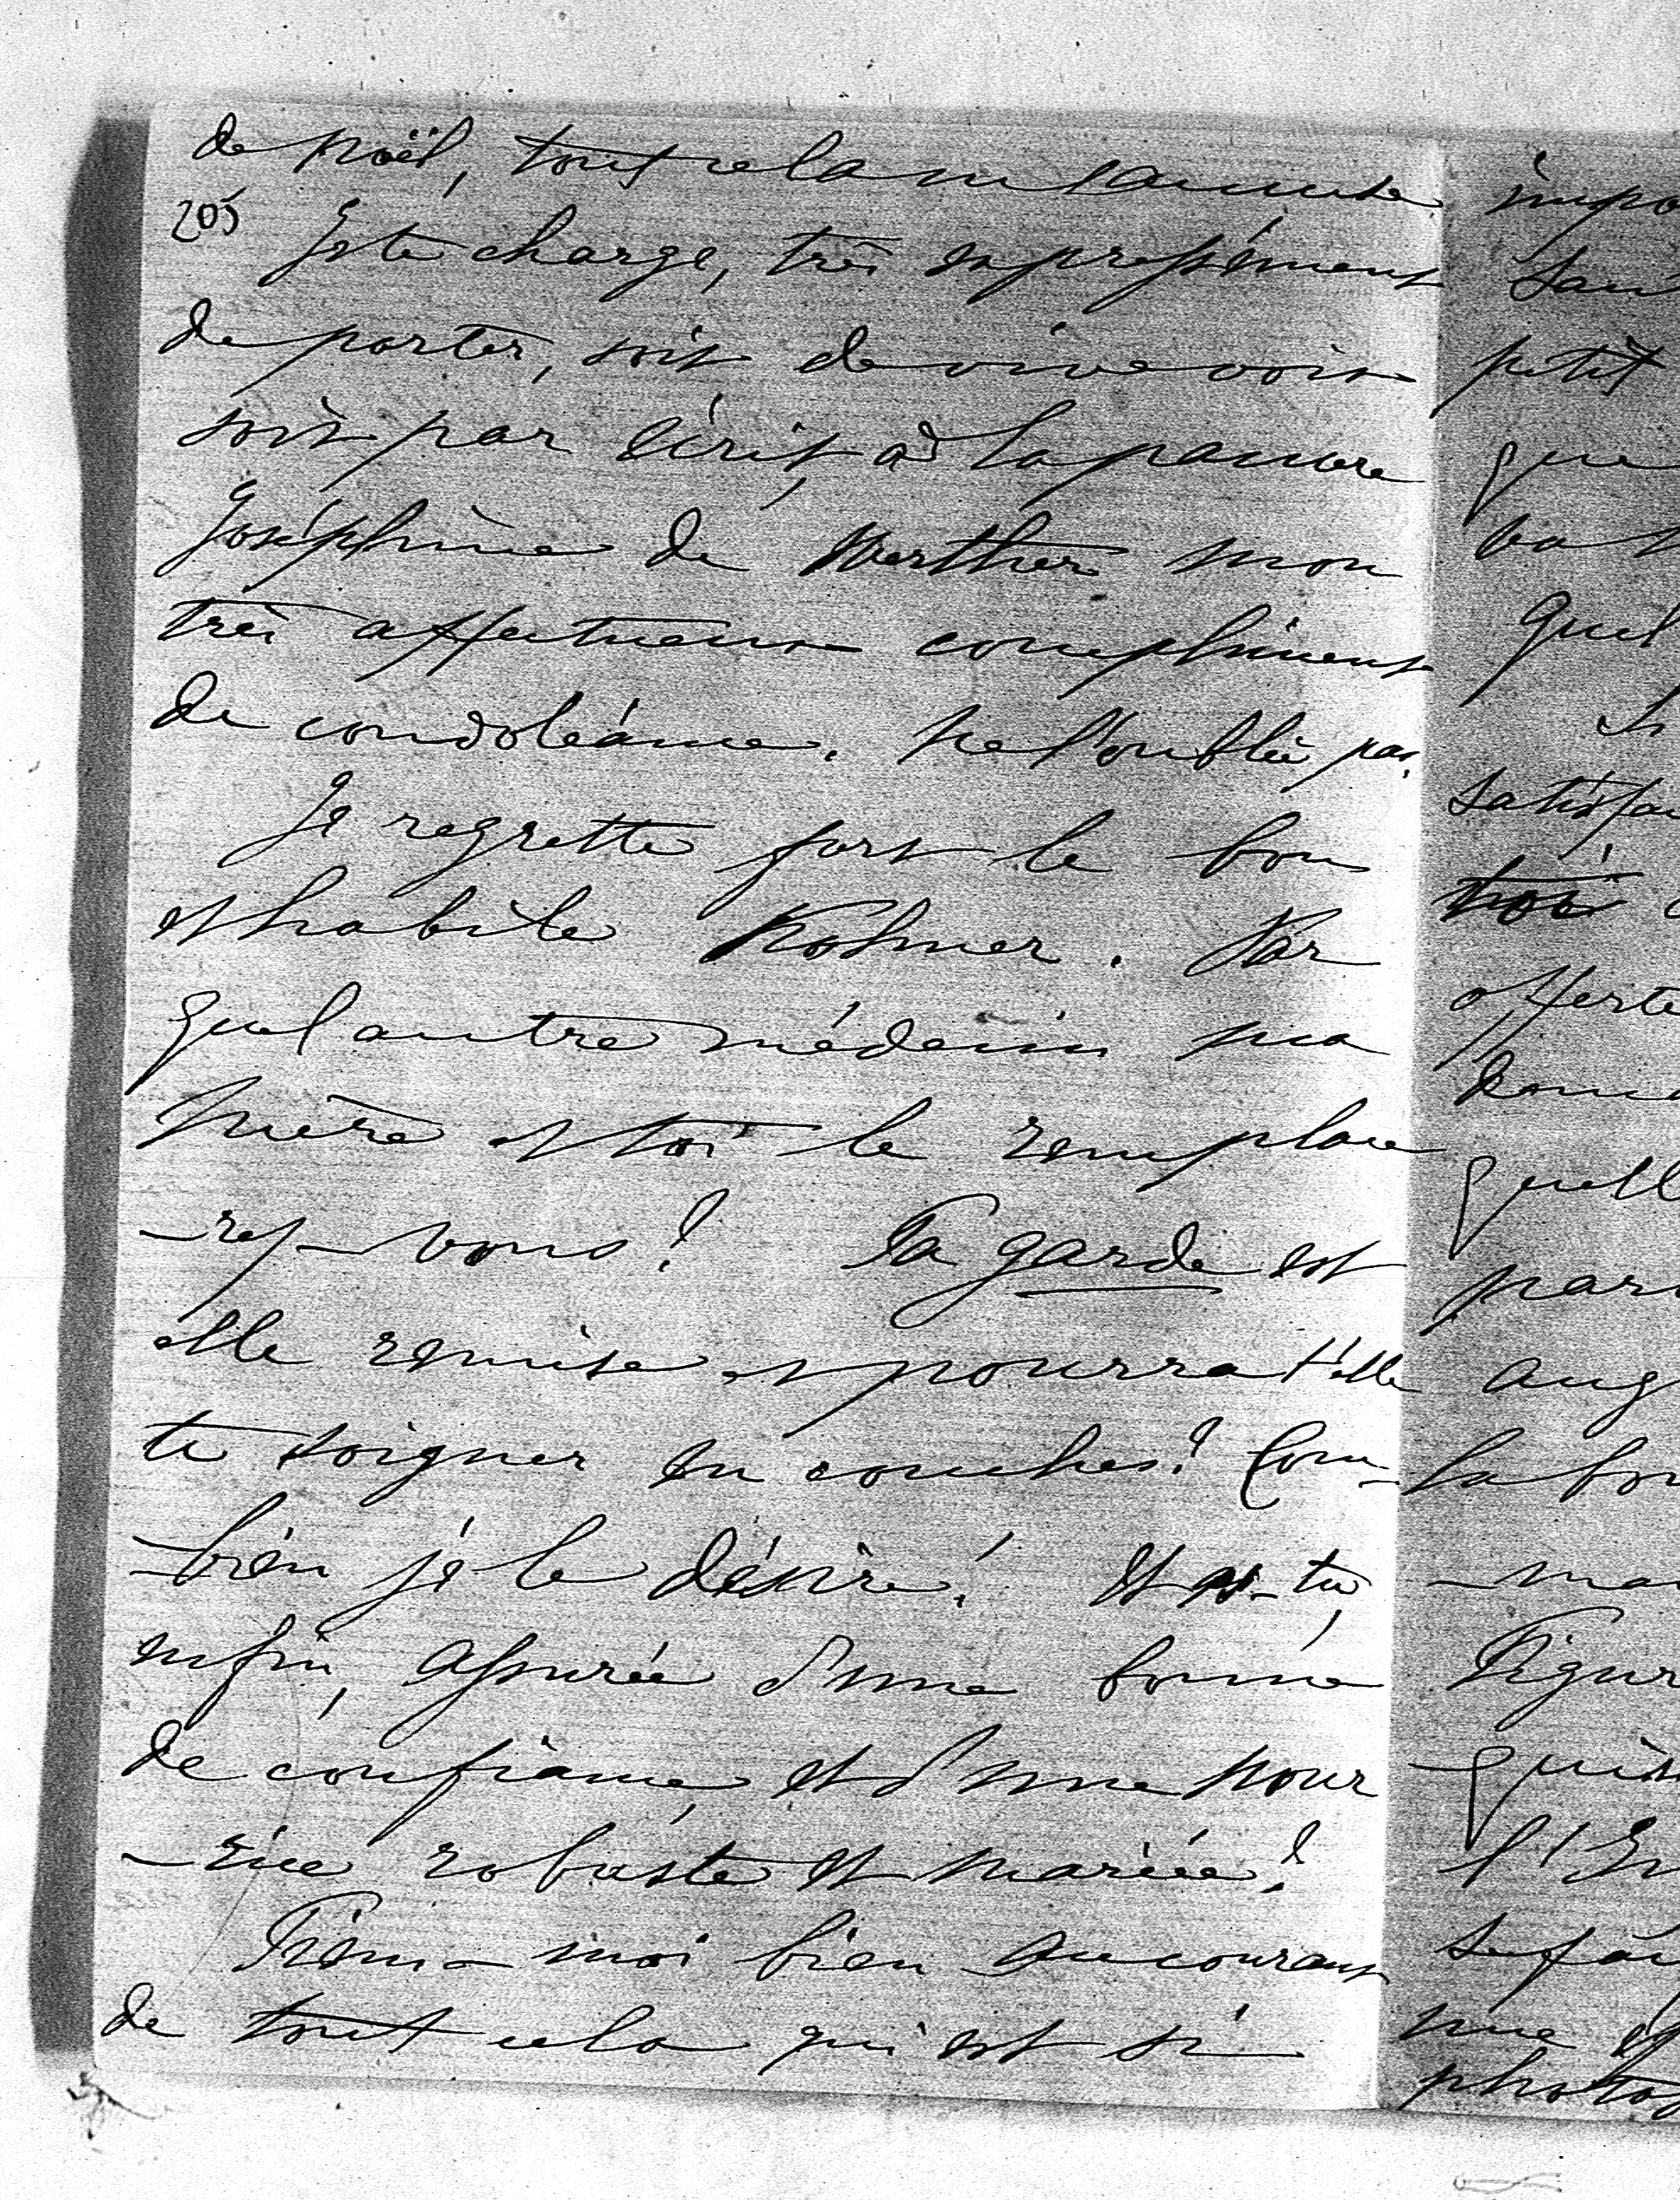 de Noël, tout cela m'amuse.
205
Je te charge, très expressément
de porter, soit de vive voix
soit par écrit, à la pauvre
Joséphine de Werther mon
très affectueux compliment
de condoléance. Ne l'oublie pas.
Je regrette fort le bon
et habile Kolmer. Par
quel autre médecin ma
mère et toi le remplace
-rez-vous? Ta garde est
elle remise et pourra t'elle
te soigner en couches? Com-
-bien je le désire! Et es-tu
enfin, assurée d'une bonne
de confiance et d'une nour
-rice robuste et mariée?
Tiens-moi bien au courant
de tout cela qui est si
impo
sant
petit
que
va
quel
satisfai
offerte
donne
quell
par
aug
la bon
-ma
Figur
qui
l'En
une
photog